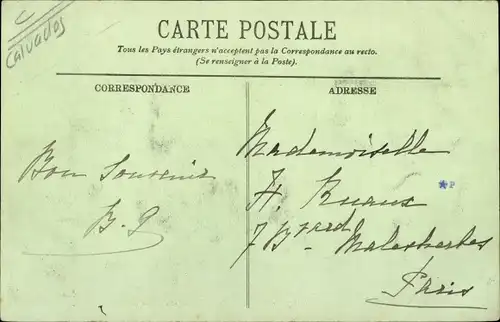 C
Calvados
CARTE POSTALE
Tous les Pays étrangers n'acceptent pas la Correspondance au recto.
(Se renseigner à la Poste).
CORRESPONDANCE
ADRESSE
Bon Souvenir
B. P
Mademoiselle
H. Ruaux
7 Bvard Malesherbes
Paris
*P